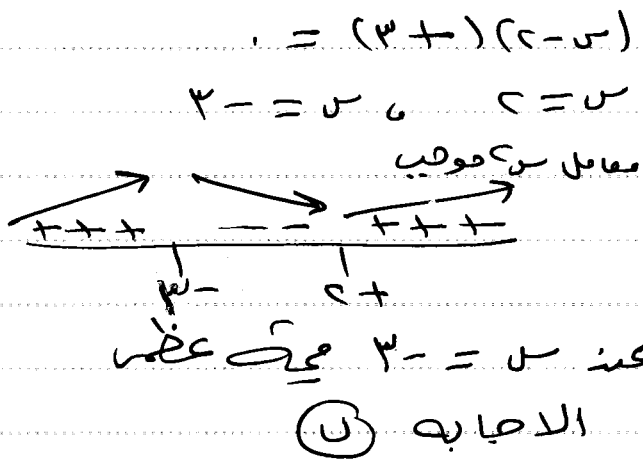 (س-٢)(+٣) = ٠
س = ٢ ، س = -٣
معامل س٢ موجب
+++ -- +++
-٣ +٢
عند س = -٣ قيمة عظمى
الاجابه (ب)